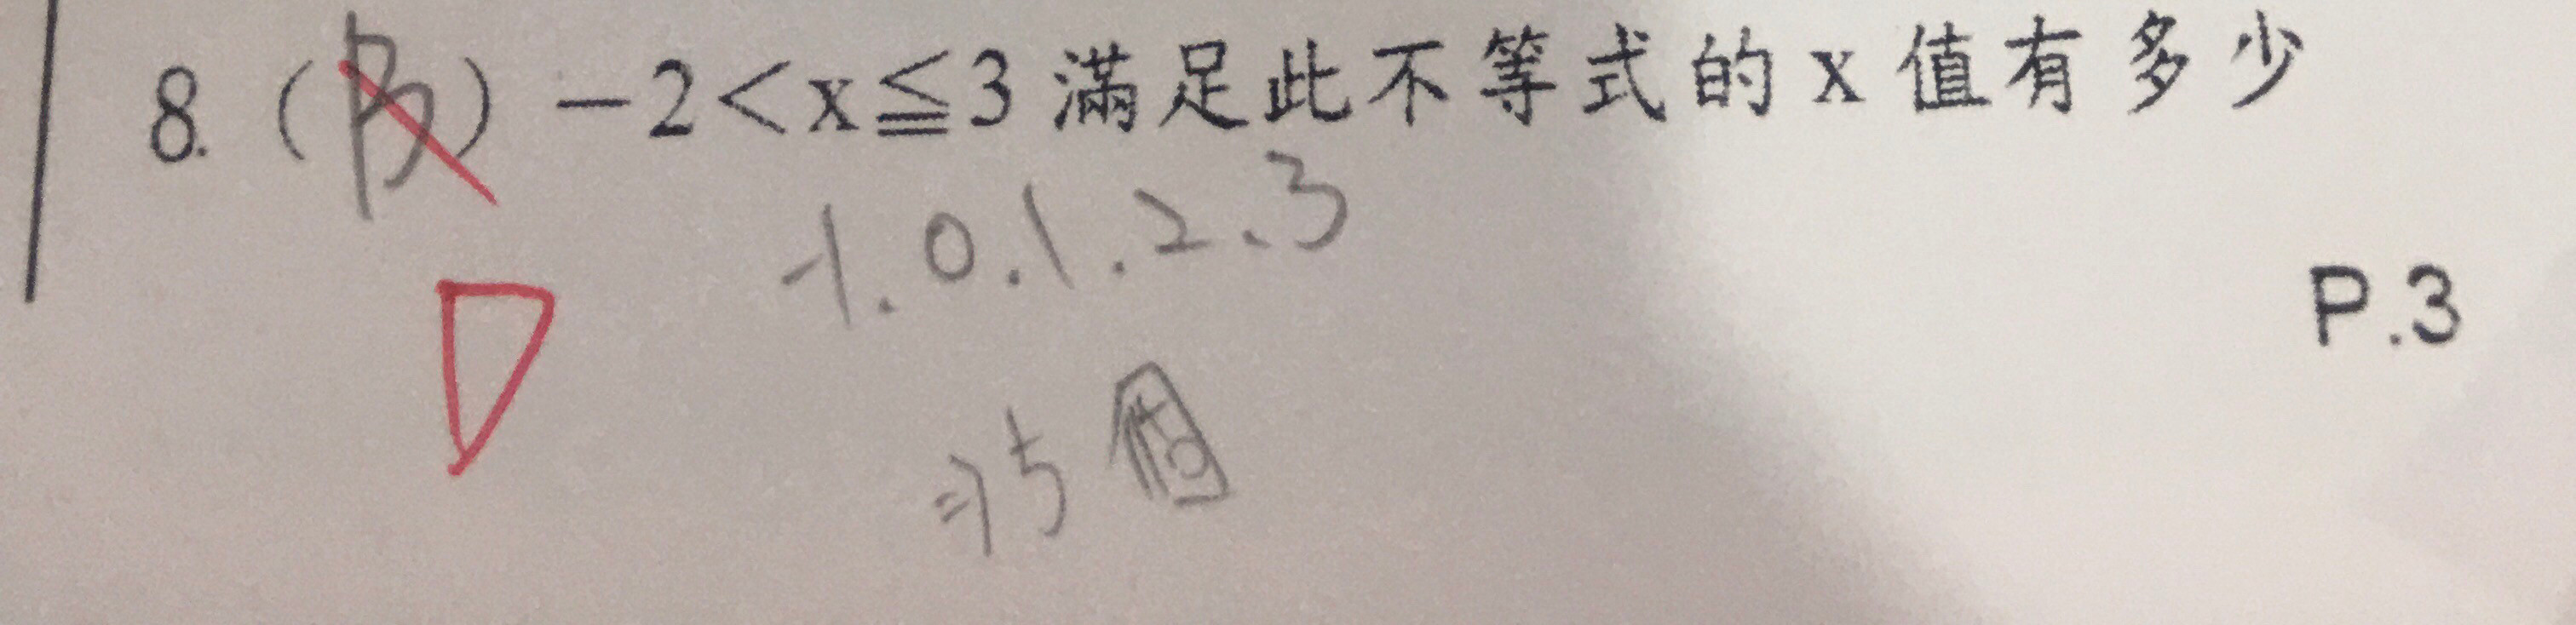 8. (B) －2＜x≦3 滿足此不等式的 x 值有多少
-1.0.1.2.3
D
P.3
⇒5個